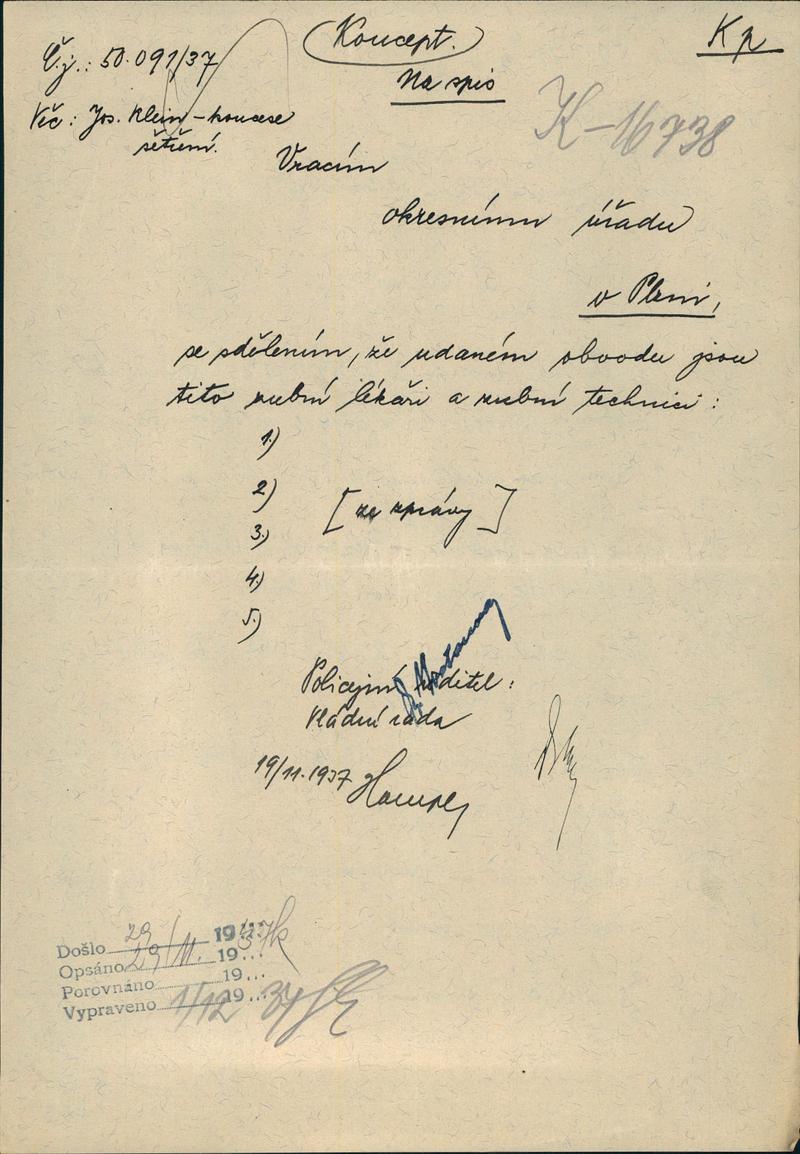 Koncept.
Kp
Č.j.: 50.091/37
Na spis
Věc: Jos. Klein – koncese
šetření.
K-16738
Vracím
okresnímu úřadu
v Plzni,
se sdělením, že udaném obvodu jsou
tito zubní lékaři a zubní technici:
1.)
2.)
[ze zprávy]
3.)
4.)
5.)
Policejní ředitel:
vládní rada
19/11.1937
Došlo 29/ 1937
Opsáno 29/11. 19...
Porovnáno 19...
Vypraveno 1/12 19... 37